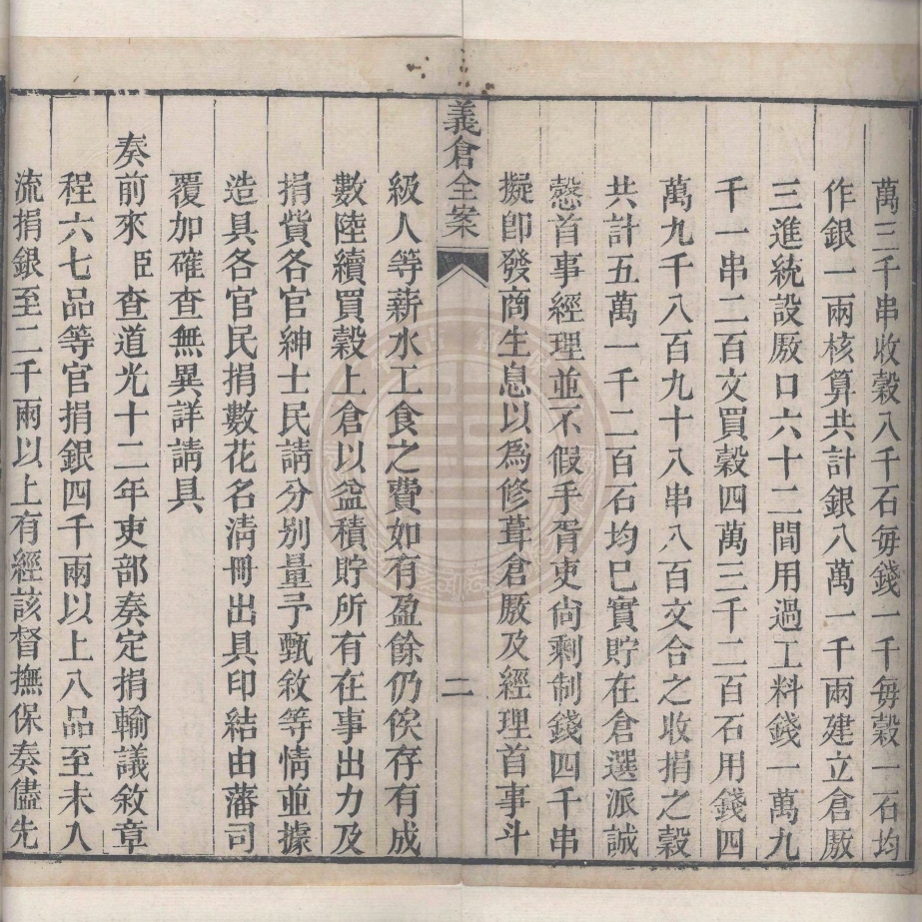 萬三千串收穀八千石每錢一千每穀一石均
作銀一兩核算共計銀八萬一千兩建立倉厫
三進統設厫口六十二間用過工料錢一萬九
千一串二百文買穀四萬三千二百石用錢四
萬九千八百九十八串八百文合之收捐之穀
共計五萬一千二百石均已實貯在倉選派誠
慤首事經理並不假手胥吏尙剩制錢四千串
擬卽發商生息以爲修葺倉厫及經理首事斗
義倉全案
二
級人等薪水工食之費如有盈餘仍俟存有成
數陸續買穀上倉以益積貯所有在事出力及
捐貲各官紳士民請分别量予甄敘等情並據
造具各官民捐數花名淸冊出具印結由藩司
覆加確查無異詳請具
奏前來臣查道光十二年吏部奏定捐輸議敘章
程六七品等官捐銀四千兩以上八品至未入
流捐銀至二千兩以上有經該督撫保奏儘先